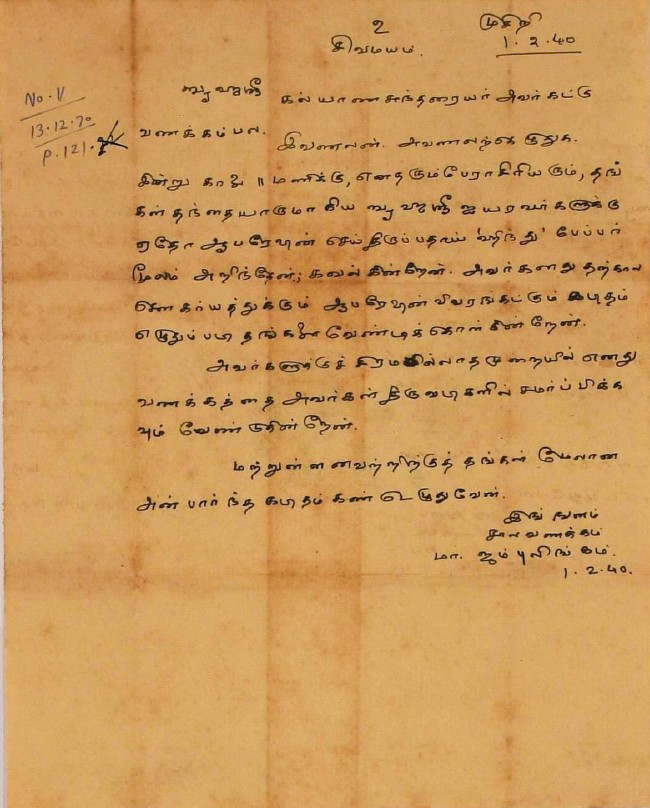 உ
முசிறி
சிவமயம்.
1.2.40
No. V
13.12.70
P.121.
ஸ்ரீ கல்யாணசுந்தரையர் அவர்கட்கு
வணக்கம்பல.
இவணலன். அவணலந்தெழுதுக.
இன்று காலை || மணிக்கு, எனதரும்பேராசிரியரும், தங்
கள் தந்தையாருமாகிய ஸ்ரீ ஐயரவர்களுக்கு
ஏதோ ஆபரேஷன் செய்திருப்பதாய் 'ஹிந்து' பேப்பர்
மூலம் அறிந்தேன்; கவல்கின்றேன். அவர்களது தற்கால
சௌகர்யத்துக்கும் ஆபரேஷன் விவரங்கட்கும் கடிதம்
எழுதும்படி தங்களை வேண்டிக்கொள்கின்றேன்.
அவர்களுக்குச் சிரமமில்லாதமுறையில் எனது
வணக்கத்தை அவர்கள் திருவடிகளில் சமர்ப்பிக்க
வும் வேண்டுகின்றேன்.
மற்றுள்ளனவற்றிற்குத் தங்கள் மேலான
அன்பார்ந்த கடிதம் கண்டெழுதுவேன்.
இங்ஙனம்
வணக்கம்
மா. ஜம்புலிங்கம்.
1.2.40.